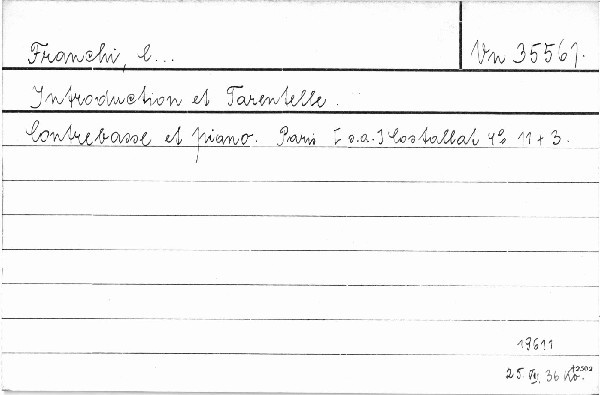 Franchi, C... Vn 35561.
Introduction et Tarentelle.
Contrebasse et piano. Paris [s.a.] Costallat 4° 11 + 3.
19611
25. VII. 36 Ko.